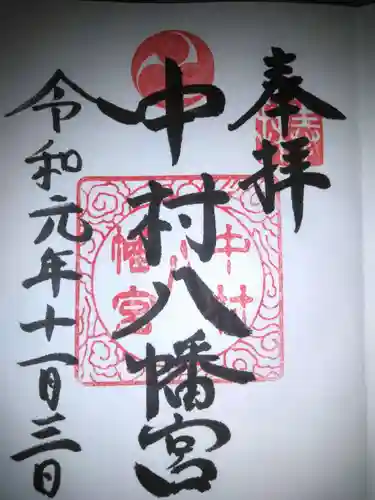 奉拝
中村八幡宮
令和元年十一月三日
中村
八幡宮